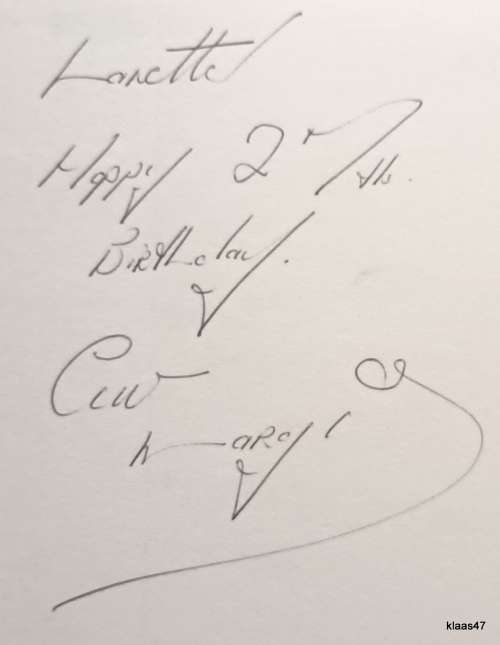 Lanette
Happy 27 th.
Birthday.
klaas47